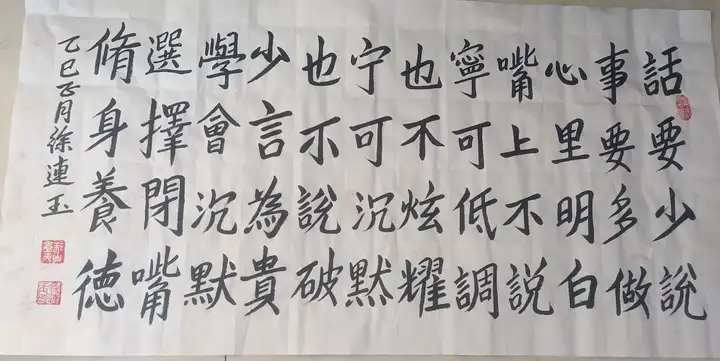 話要少說
事要多做
心里明白
嘴上不說
寧可低調
也不炫耀
宁可沉黙
也不說破
少言為貴
學會沉默
選擇閉嘴
脩身養德
乙巳正月徐連玉